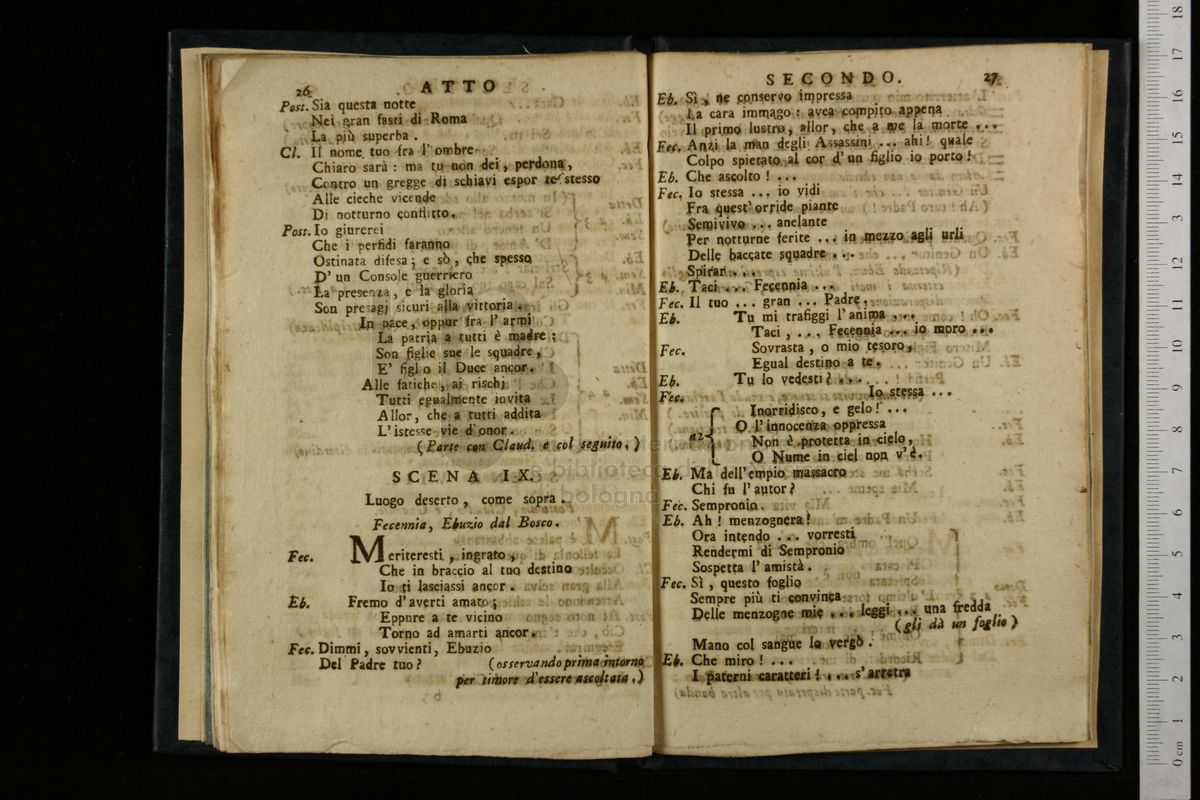 26 ATTO
Post. Sia questa notte
Nei gran fasti di Roma
La più superba.
Cl. Il nome tuo fra l'ombre
Chiaro sarà: ma tu non dei, perdona,
Contro un gregge di schiavi espor te stesso
Alle cieche vicende
Di notturno conflitto.
Post. Io giurerei
Che i perfidi faranno
Ostinata difesa; e sò, che spesso
D'un Console guerriero
La presenza, e la gloria
Son presagj sicuri alla vittoria.
In pace, oppur fra l'armi
La patria a tutti è madre:
Son figlie sue le squadre,
E' figlio il Duce ancor.
Alle fatiche, ai rischj
Tutti egualmente invita
Allor, che a tutti addita
L'istesse vie d'onor.
(Parte con Claud. e col seguito.)
SCENA IX.
Luogo deserto, come sopra.
Fecennia, Ebuzio dal Bosco.
Fec. Meriteresti, ingrato,
Che in braccio al tuo destino
Io ti lasciassi ancor.
Eb. Fremo d'averti amato;
Eppure a te vicino
Torno ad amarti ancor.
Fec. Dimmi, sovvienti, Ebuzio
Del Padre tuo? (osservando prima intorno
per timore d'essere ascoltata.)
SECONDO. 27
Eb. Sì, ne conservo impressa
La cara immago: avea compito appena
Il primo lustro, allor, che a me la morte ...
Fec. Anzi la man degli Assassini ... ahi! quale
Colpo spietato al cor d'un figlio io porto!
Eb. Che ascolto! ...
Fec. Io stessa ... io vidi
Fra quest'orride piante
Semivivo ... anelante
Per notturne ferite ... in mezzo agli urli
Delle baccate squadre ...
Spirar ...
Eb. Taci ... Fecennia ...
Fec. Il tuo ... gran ... Padre.
Eb. Tu mi trafiggi l'anima ...
Taci, ... Fecennia ... io moro ...
Fec. Sovrasta, o mio tesoro,
Egual destino a te.
Eb. Tu lo vedesti? ...
Fec. Io stessa ...
a2 Inorridisco, e gelo! ...
O l'innocenza oppressa
Non è protetta in cielo,
O Nume in ciel non v'è.
Eb. Ma dell'empio massacro
Chi fu l'autor?
Fec. Sempronio.
Eb. Ah! menzognera!
Ora intendo ... vorresti
Rendermi di Sempronio
Sospetta l'amistà.
Fec. Sì, questo foglio
Sempre più ti convinca
Delle menzogne mie ... leggi ... una fredda
(gli dà un foglio)
Mano col sangue lo vergò.
Eb. Che miro! ...
I paterni caratteri! ... s'arretra